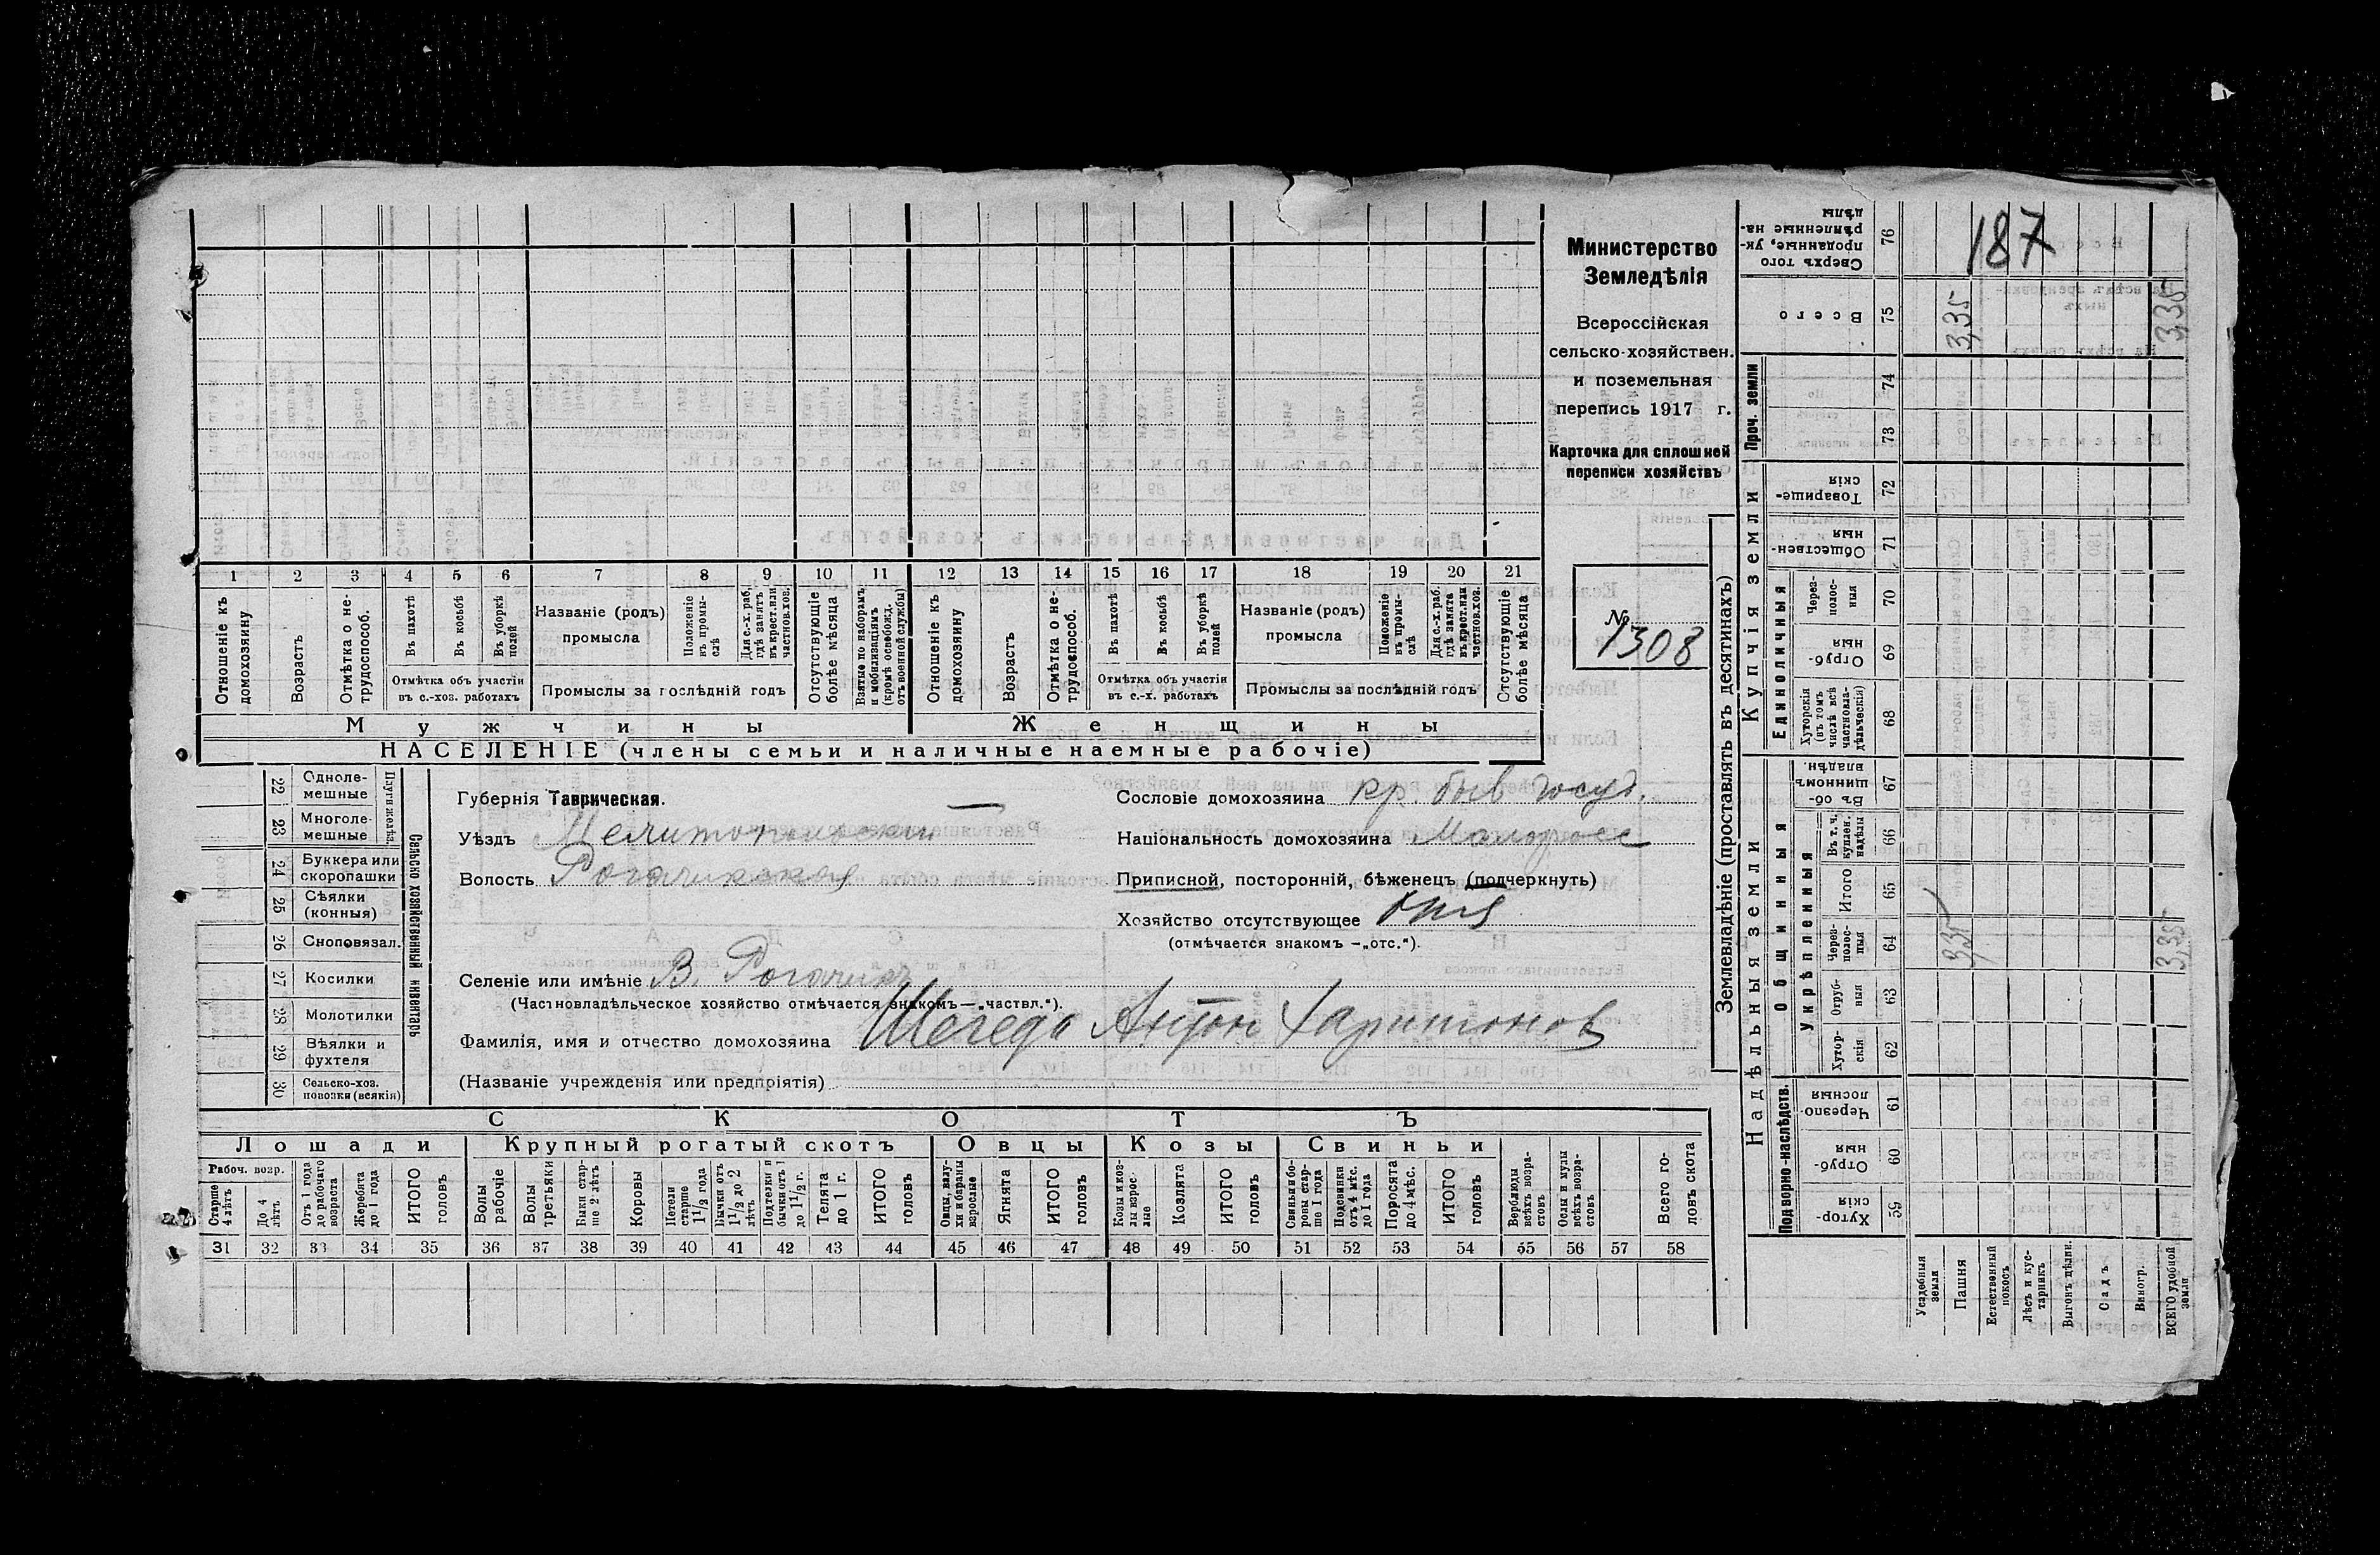 Министерство
Земледѣлія
Всероссійская
сельско-хозяйствен.
и поземельная
перепись 1917 г.
Карточка для сплошной
переписи хозяйствъ
№
1308
187
1 2 3 4 5 6 7 8 9 10 11 12 13 14 15 16 17 18 19 20 21
Отношеніе къ домохозяину
Возрастъ
Отмѣтка о не-трудоспособ.
Въ пахотѣ
Въ косьбѣ
Въ уборкѣ полей
Отмѣтка объ участіи
въ с.-хоз. работахъ
Названіе (родъ)
промысла
Положеніе въ промы-слѣ
Для с.-х. раб. гдѣ занятъ въ крест. или частнов. хоз.
Промыслы за послѣдній годъ
Отсутствующіе болѣе мѣсяца
Взятые по наборамъ и мобилизаціямъ (кромѣ освобожд. отъ военной службы)
Отношеніе къ домохозяину
Возрастъ
Отмѣтка о не-трудоспособ.
Въ пахотѣ
Въ косьбѣ
Въ уборкѣ полей
Отмѣтка объ участіи
въ с.-х. работахъ
Названіе (родъ)
промысла
Положеніе въ промы-слѣ
Для с.-х. раб. гдѣ занята въ крест. или частнов. хоз.
Промыслы за послѣдній годъ
Отсутствующіе болѣе мѣсяца
Мужчины Женщины
НАСЕЛЕНІЕ (члены семьи и наличные наемные рабочіе)
Сельско хозяйственный инвентарь
Плуги желѣз.
22 Одноле-мешные
23 Многоле-мешные
24 Буккера или скоропашки
25 Сѣялки (конныя)
26 Сноповязал.
27 Косилки
28 Молотилки
29 Вѣялки и фухтеля
30 Сельско-хоз. повозки (всякія)
Губернія Таврическая.
Уѣздъ Мелитопольскій
Волость Рогачикская
Селеніе или имѣніе В. Рогачик
(Частновладѣльческое хозяйство отмѣчается знакомъ—„частвл.“).
Фамилія, имя и отчество домохозяина Шегеда Антон Харитонов
(Названіе учрежденія или предпріятія)
Сословіе домохозяина кр. быв госуд.
Національность домохозяина Малоросс
Приписной, посторонній, бѣженецъ (подчеркнуть)
Хозяйство отсутствующее отс
(отмѣчается знакомъ —„отс.“).
СКОТЪ
Лошади Крупный рогатый скотъ Овцы Козы Свиньи
Рабоч. возр.
Старше 4 лѣтъ
До 4 лѣтъ
Отъ 1 года до рабочаго возраста
Жеребята до 1 года
ИТОГО головъ
Волы рабочіе
Волы третьяки
Быки стар-ше 2 лѣтъ
Коровы
Нетели старше 1 1/2 года
Бычки отъ 1 1/2 до 2 лѣтъ
Подтелки и бычки отъ 1 до 1 1/2 г.
Телята до 1 г.
ИТОГО головъ
Овцы, валу-хи и бараны взрослые
Ягнята
ИТОГО головъ
Козы и коз-лы взрос-лые
Козлята
ИТОГО головъ
Свиньи и бо-ровы стар-ше 1 года
Подсвинки отъ 4 мѣс. до 1 года
Поросята до 4 мѣс.
ИТОГО головъ
Верблюды всѣхъ возра-стовъ
Ослы и мулы всѣхъ возра-стовъ
Всего го-ловъ скота
31 32 33 34 35 36 37 38 39 40 41 42 43 44 45 46 47 48 49 50 51 52 53 54 55 56 57 58
Землевладѣніе (проставлять въ десятинахъ)
Надѣльныя земли
Купчія земли
Подворно-наслѣдств.
Общинныя
Укрѣпленныя
Единоличныя
Проч. земли
Сверхъ того проданные, ук-рѣпленные на-дѣлы 76
Всего 75 3,35 3,35
74
73
Товарище-скія 72
Обществен-ныя 71
Через-полос-ныя 70
Отруб-ныя 69
Хуторскія (въ томъ числѣ всѣ частновла-дѣльческія) 68
Въ об-щинномъ владѣн. 67
Въ т. ч. куплен. надѣлы 66
Итого 65
Через-полос-ныя 64 3,35 3,35
Отруб-ныя 63
Хутор-скія 62
Черезпо-лосныя 61
Отруб-ныя 60
Хутор-скія 59
Усадебныя земли
Пашня
Естественный покосъ
Лѣсъ и кус-тарникъ
Выгонъ цѣлин.
Садъ
Виногр.
ВСЕГО удобной земли